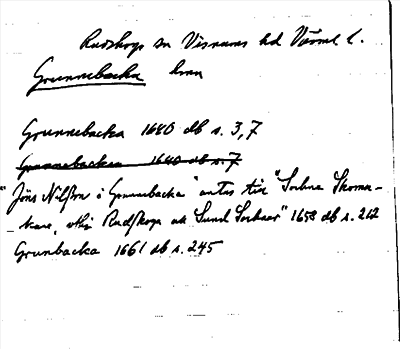 Rudskogs sn Visnums hd Värml l.
Grunnebacka hmn
Grunnebacka 1640 db s. 3, 7
Grunnebacka 1640 db s. 7
"Jöns Nilsson i Grunnebacka" antes til "Sochne Skoma-
kare, uthi Rudskoga och Sund Sochnar" 1658 db s. 212
Grunbacka 1661 db s. 245